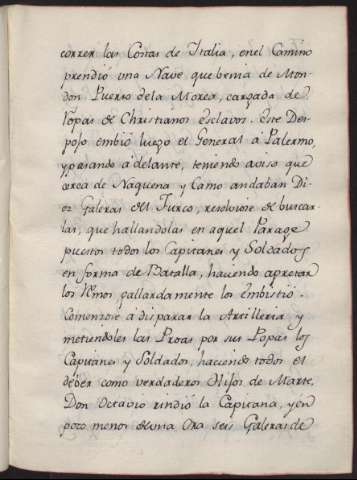 correr las Costas de Italia, en el Camino
prendió una Nave que benia de Mon-
don Puerto dela Morea, cargada de
Ropas & Christianos esclavos. Este Des-
pojo embió luego el General á Palermo,
y pasando adelante, teniendo aviso que
cerca de Naquena y Lamo andaban Di-
ez Galeras del Turco, resolviose de buscar-
las, que hallandolas en aquel Parage
puestos todos los Capitanes y Soldados
en forma de Batalla, haciendo apretar
los Rmos gallardamente los Embistió.
Comenzose á disparar la Artilleria y
metiendoles las Proas por sus Popas los
Capitanes y Soldados, haciendo todos el
déber como verdaderos Hijos de Marte,
Don Octavio rindió la Capitana, y en
poco menos de una Ora seis Galeras de